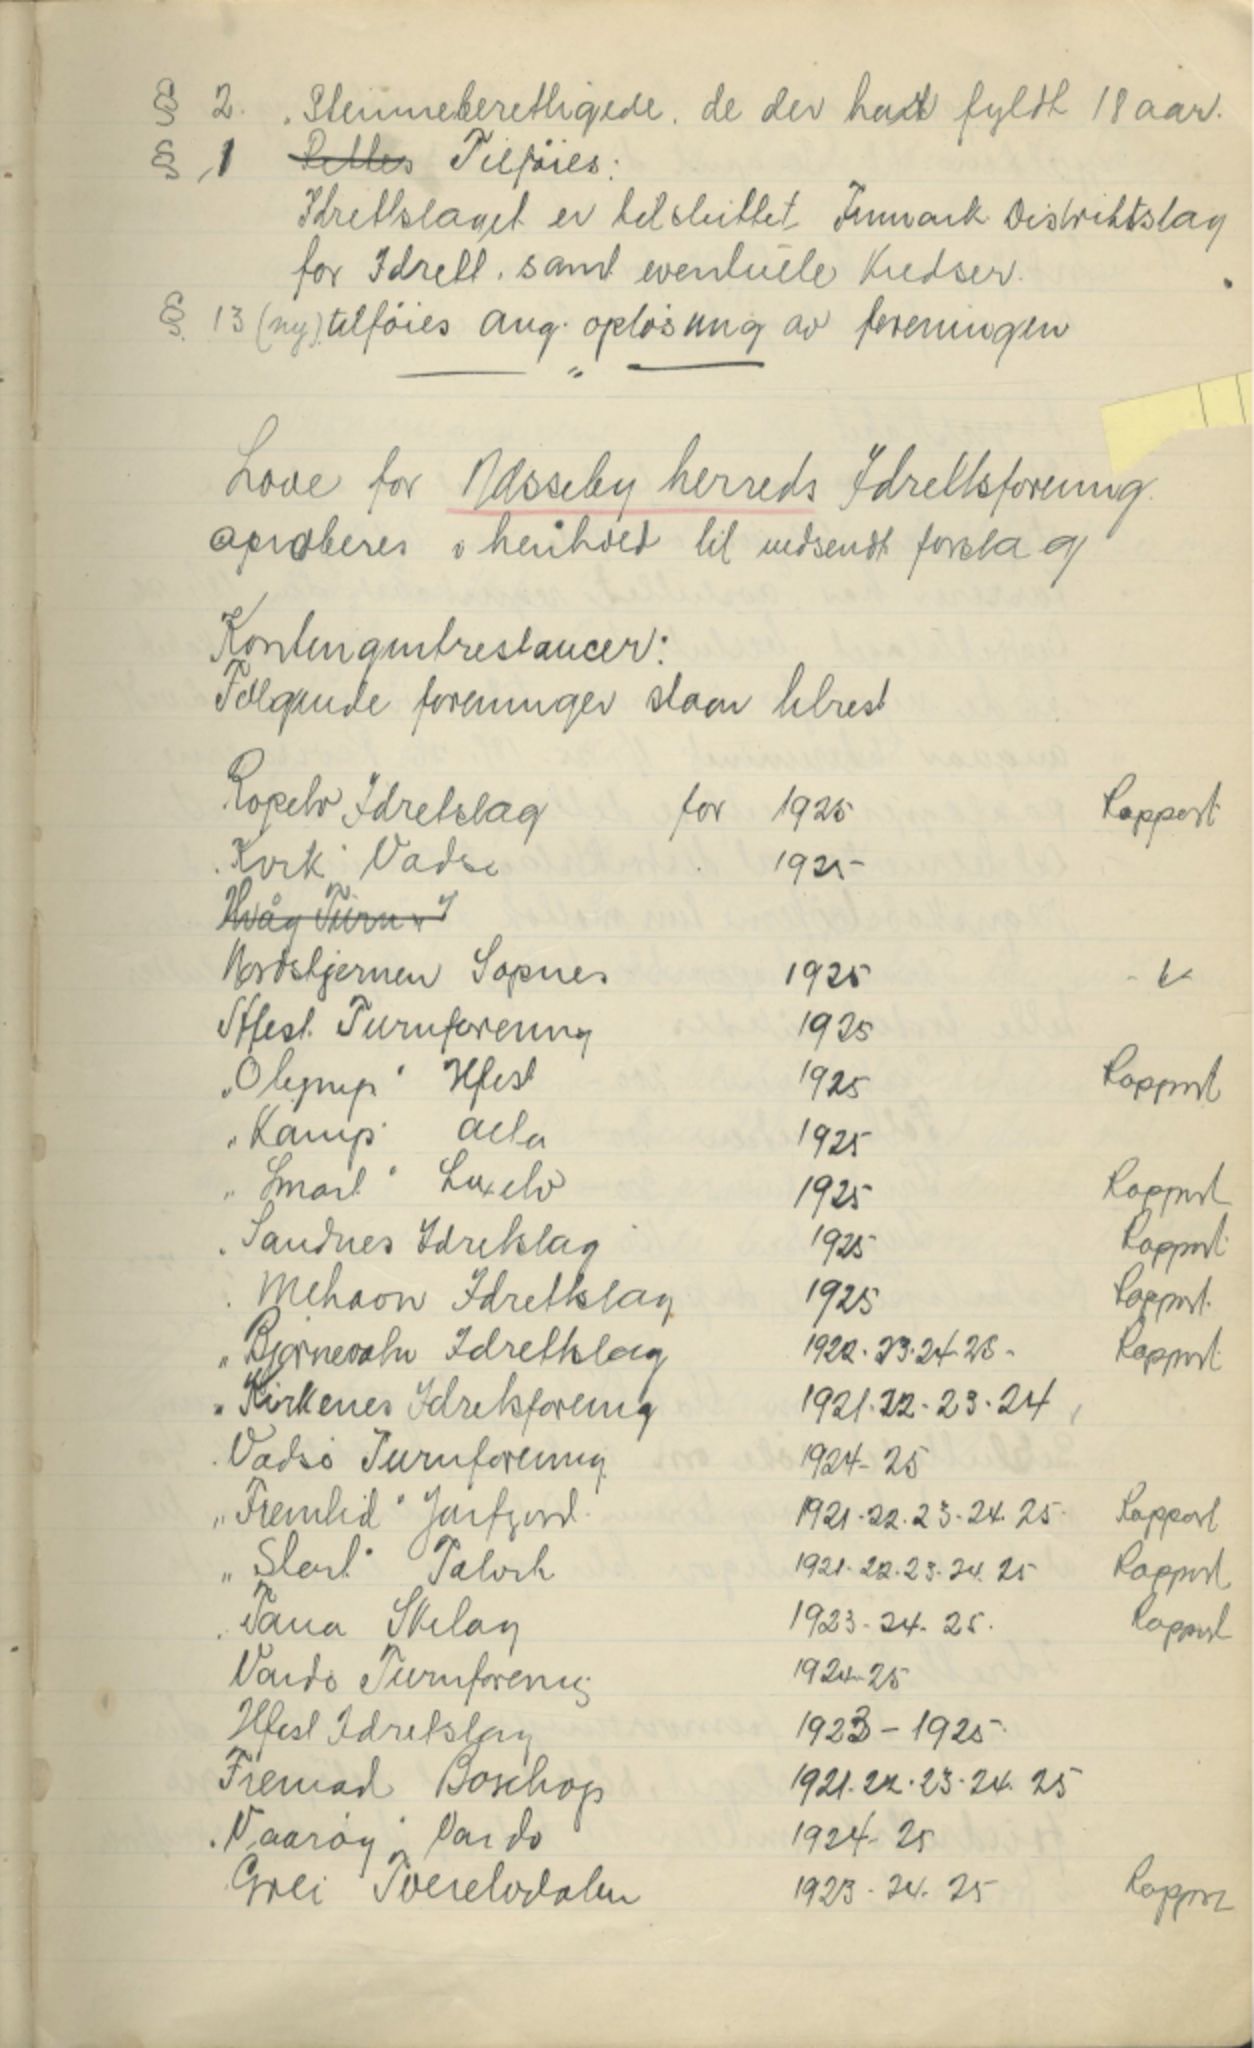 § 2. "Stemmeberettigede. de der hadt fyldt 18 aar.
§ 1 Rettes Tilføies:
Idrettslaget er tilsluttet Finmark Distriktslag
for Idrett. samt eventuele Kredser.
§ 13 (ny) tilføies ang. opløsning av foreningen
"
Love for Nesseby herreds Idrettsforening.
aproberes i henhold til indsendt forslag
Kontingentrestancer:
Følgende foreninger staar tilrest
Kopelv Idretslag for 1925 Rapport
"Kvik" Vadsø 1925
Hvåg Turn & I
Nordstjernen Sopnes 1925
Hfest Turnforening 1925
"Olymp" Hfest 1925 Rapport
"Kamp" Alta 1925
"Snart" Laxelv 1925 Rapport
Sandnes Idretslag 1925 Rapport
Mehavn Idrettslag 1925 Rapport
"Bjørnevatn Idrettslag 1922. 23. 24 25 - Rapport
"Kirkenes Idretsforening 1921. 22. 23. 24
Vadsø Turnforening 1924 - 25
"Fremtid" Jarfjord 1921. 22. 23. 24. 25 Rapport
"Start" Talvik 1921. 22. 23. 24. 25 Rapport
Tana Skilag 1923 - 24. 25. Rapport
Vardø Turnforening 1924 - 25
Hfest Idretslag 1923 - 1925
Fremad Bosekop 1921. 22. 23. 24. 25
"Vaarøy" Vardø 1924 - 25
Grei Tverelvdalen 1923 - 24. 25 Rapport